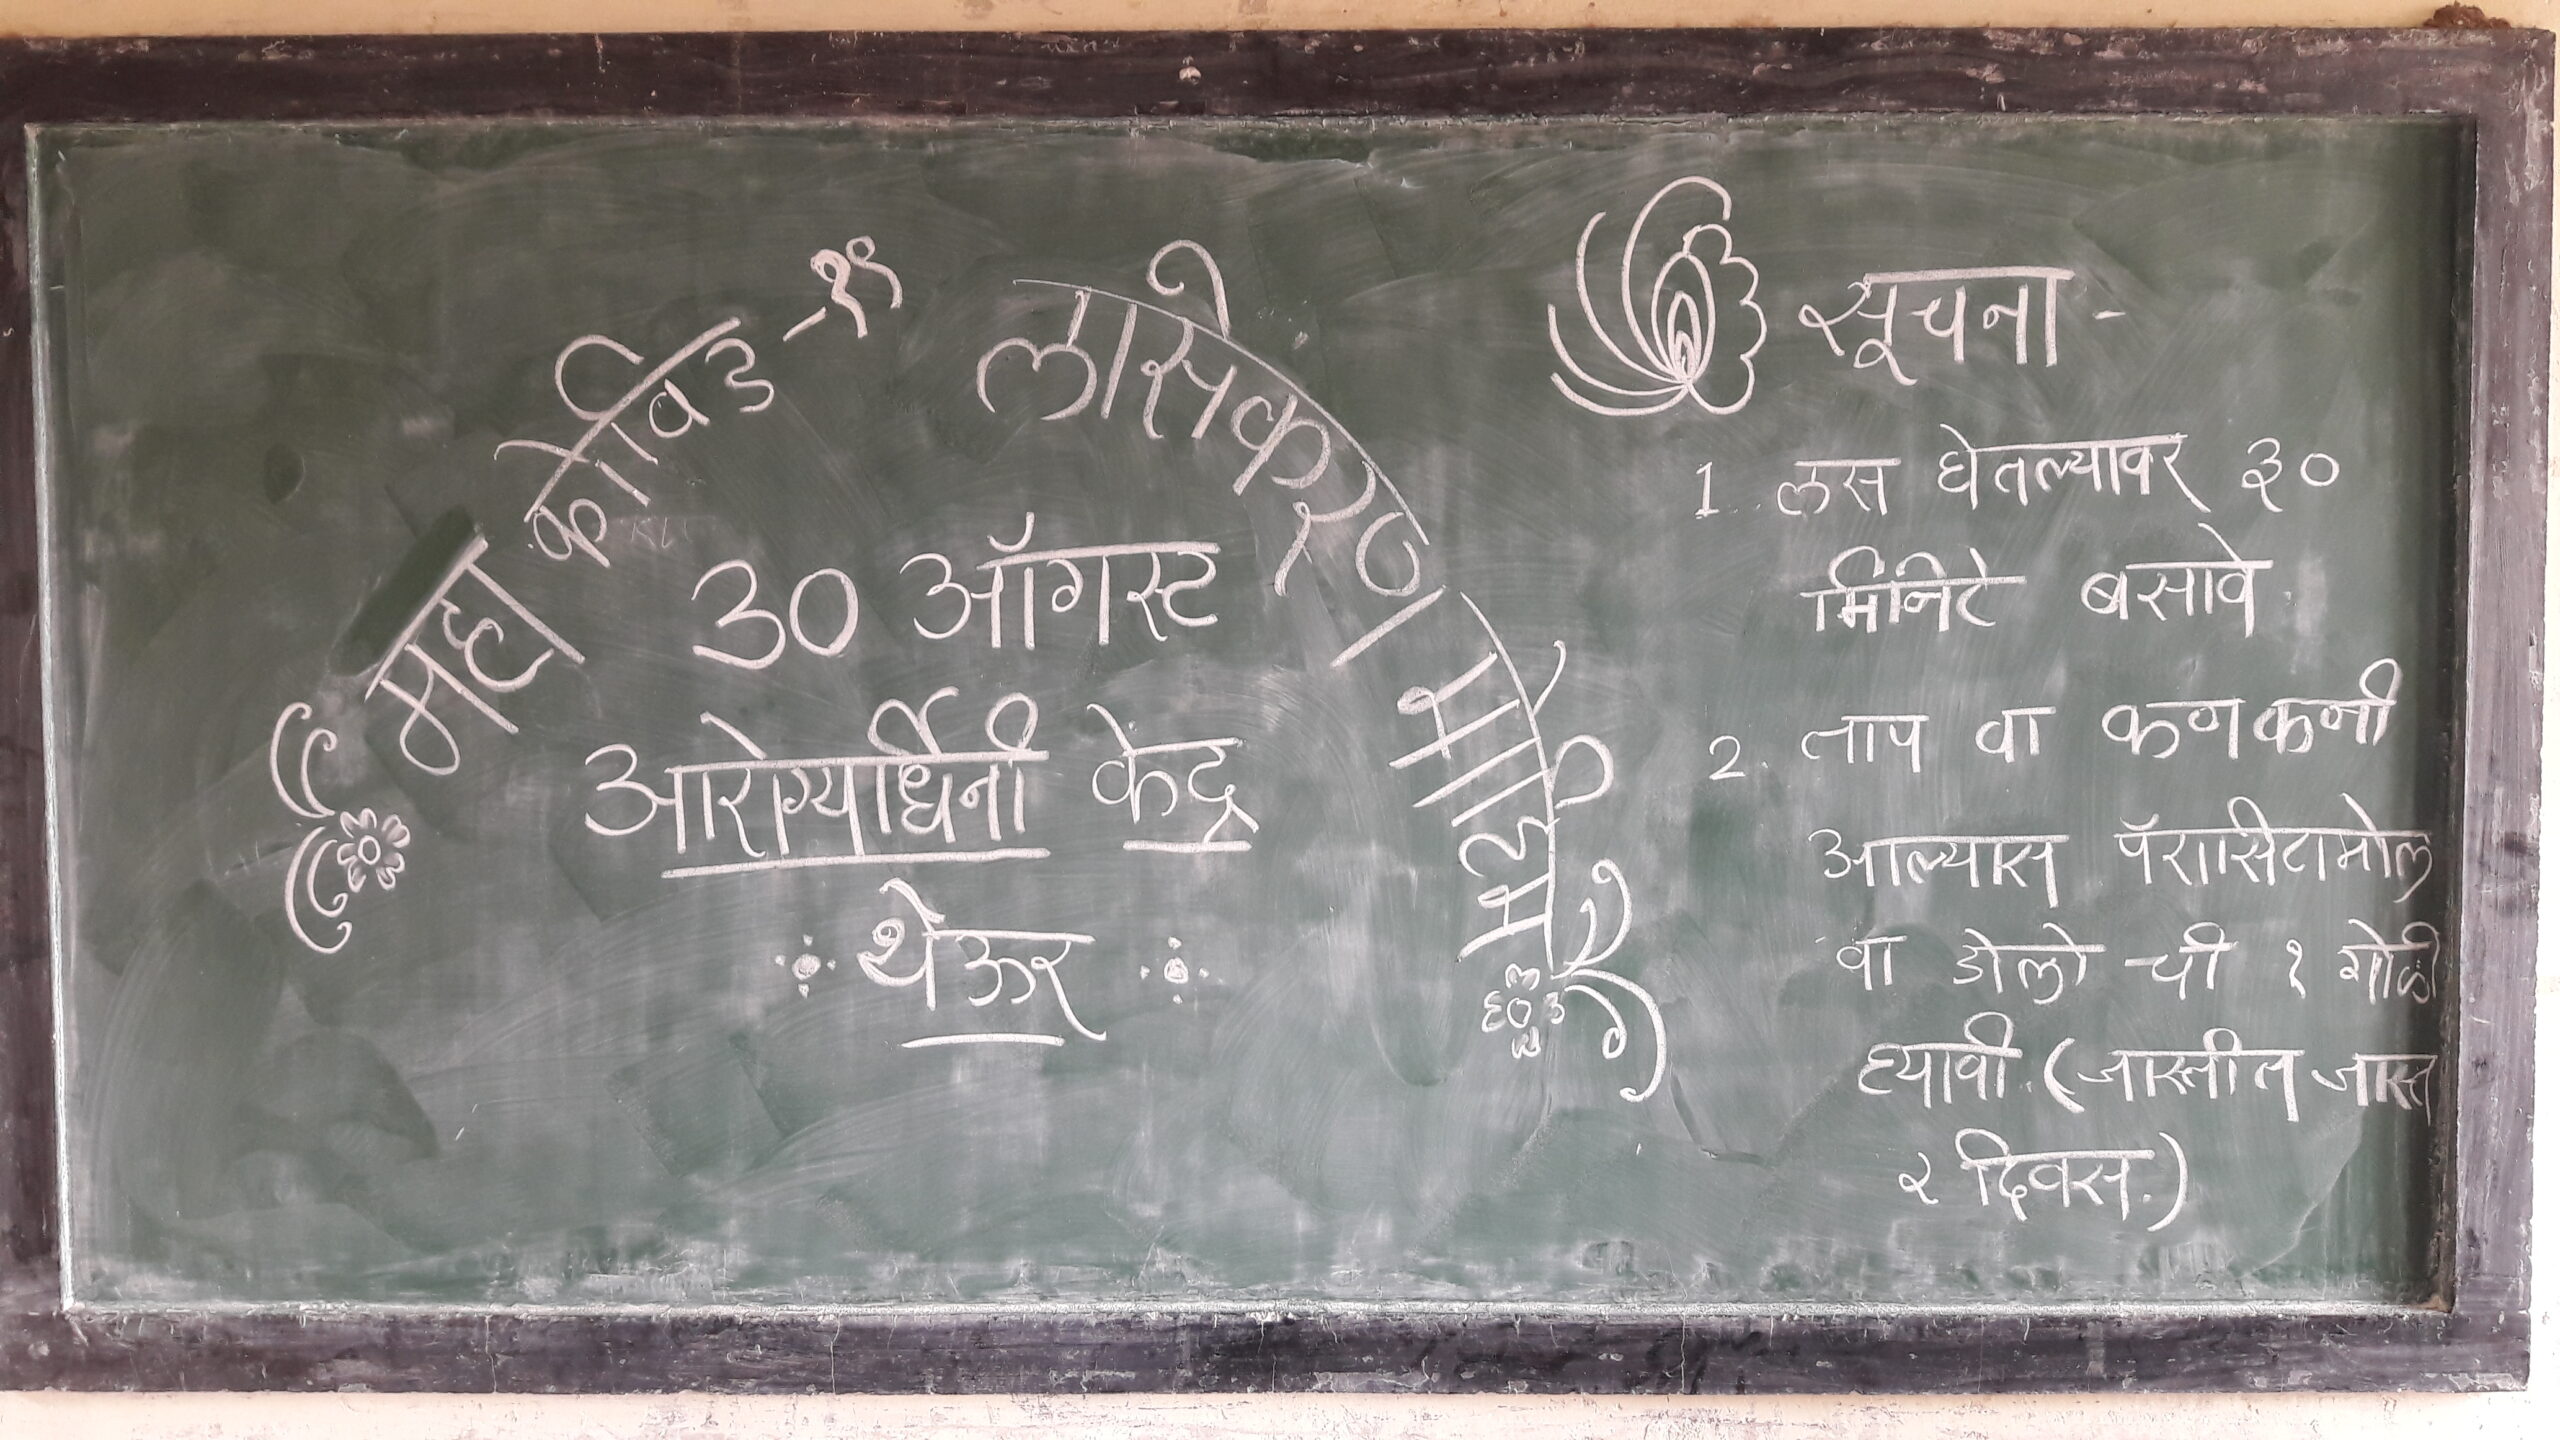 महा कोविड -१९ लसीकरण मोहिम
30 ऑगस्ट
आरोग्यर्धिनी केंद्र
थेऊर
सूचना -
1. लस घेतल्यावर ३०
मिनिटे बसावे.
2. ताप वा कणकनी
आल्यास पॅरासिटामोल
वा डोलो ची १ गोळी
घ्यावी. (जास्तीत जास्त
२ दिवस.)